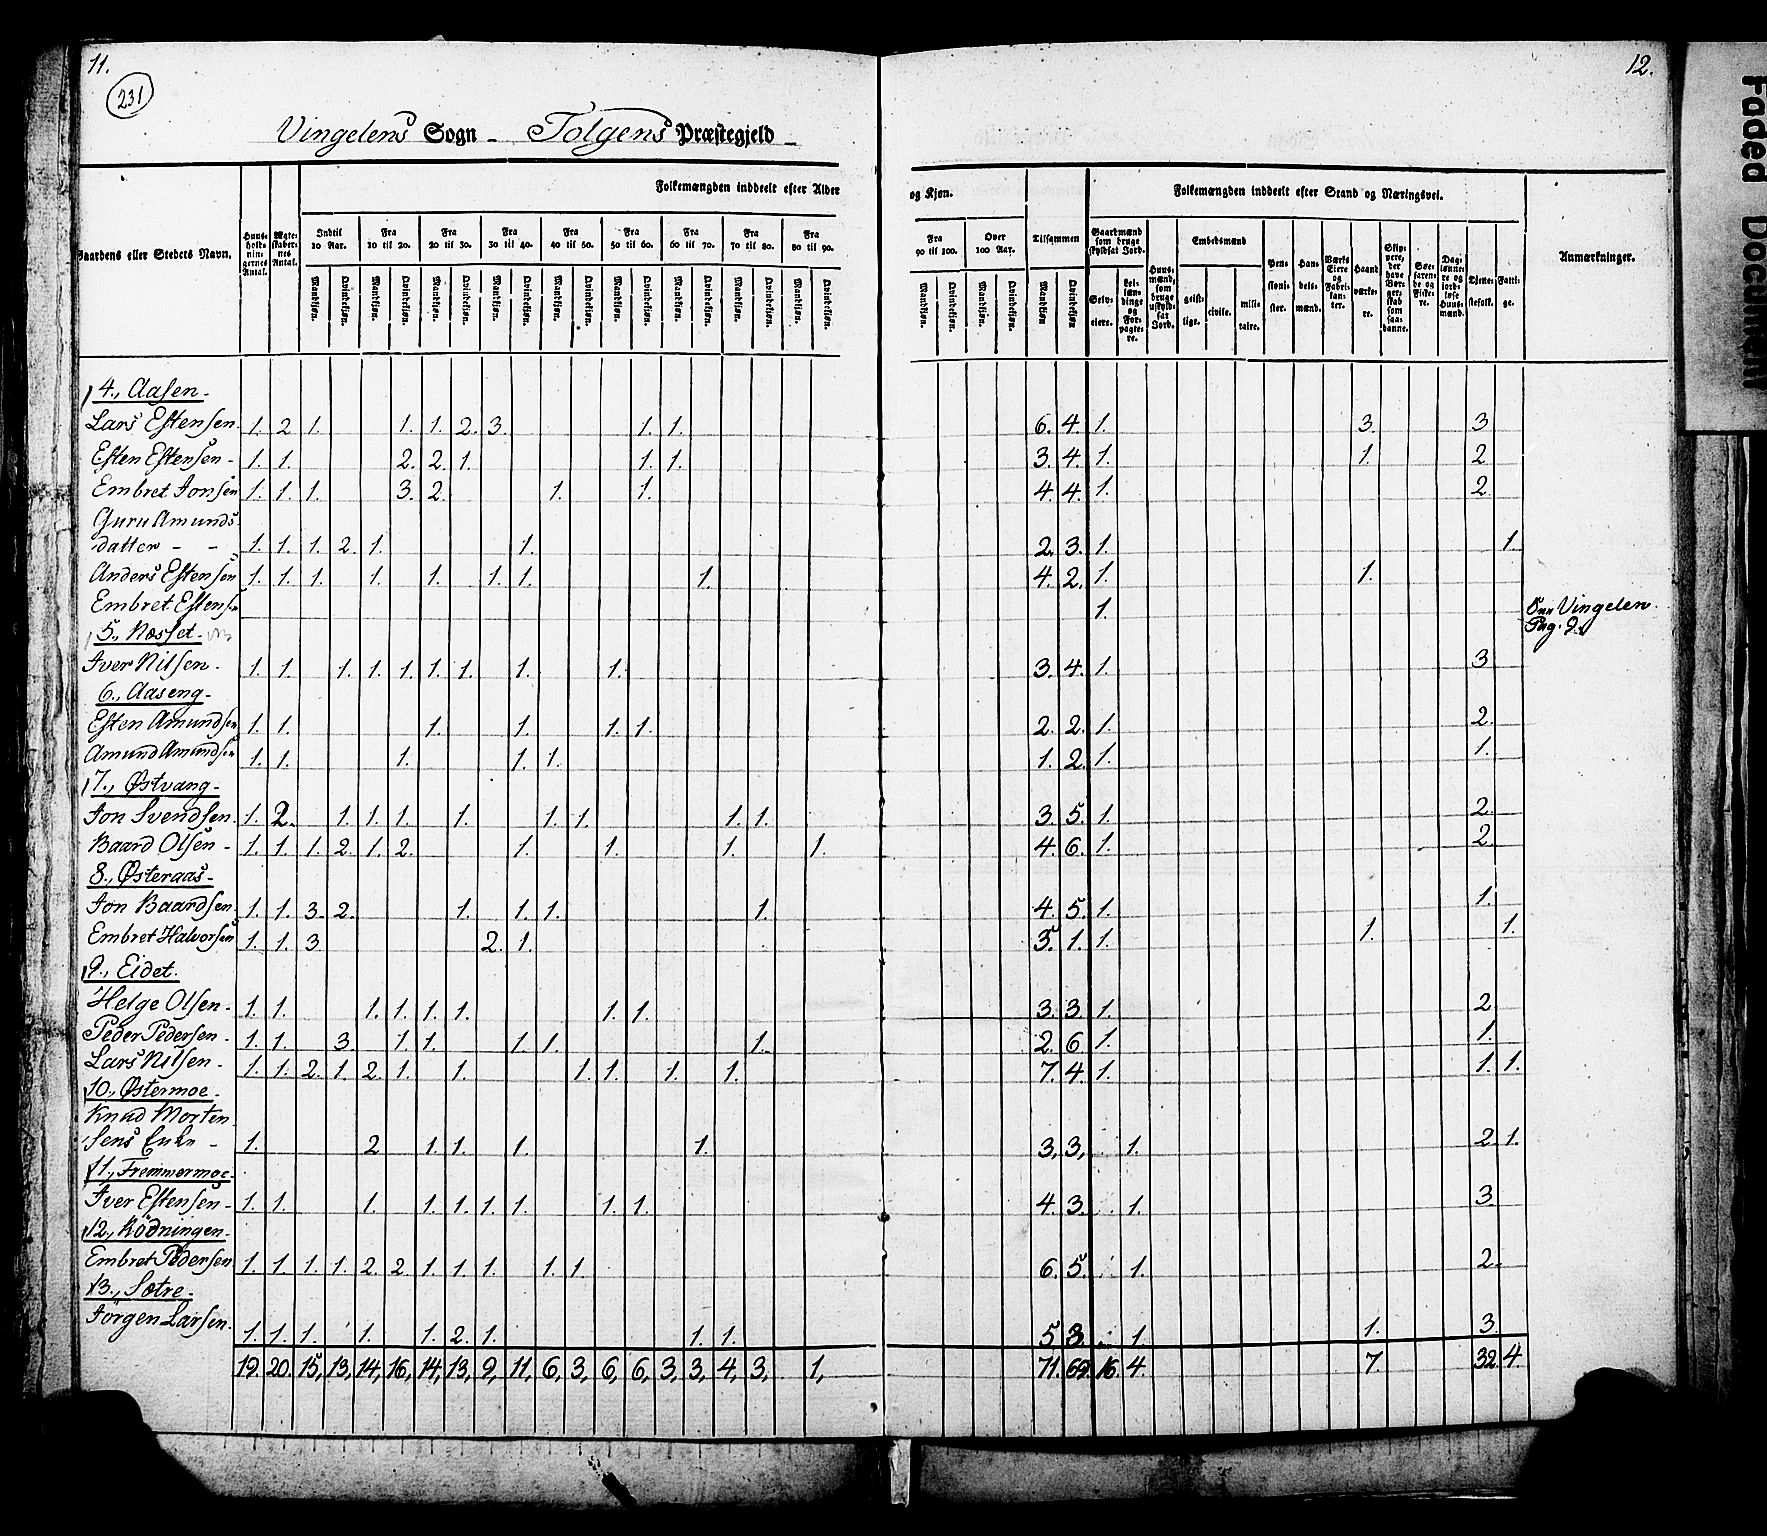 11.
12.
231
Vingelens Sogn - Tolgens Præstegjeld -
Folkemængden inddeelt efter Alder og Kjøn.
Folkemængden inddeelt efter Stand og Næringsvei.
Gaardens eller Stedets Navn.
Huus-holdnin-gernes Antal.
Ægte-skaber-nes Antal.
Indtil 10 Aar.
Fra 10 til 20.
Fra 20 til 30.
Fra 30 til 40.
Fra 40 til 50.
Fra 50 til 60.
Fra 60 til 70.
Fra 70 til 80.
Fra 80 til 90.
Fra 90 til 100.
Over 100 Aar.
Tilsammen
Gaardmænd som bruge skyldsat Jord.
Embedsmænd
Anmærkninger.
Mandkjøn. Qvindekjøn. Mandkjøn. Qvindekjøn. Mandkjøn. Qvindekjøn. Mandkjøn. Qvindekjøn. Mandkjøn. Qvindekjøn. Mandkjøn. Qvindekjøn. Mandkjøn. Qvindekjøn. Mandkjøn. Qvindekjøn. Mandkjøn. Qvindekjøn. Mandkjøn. Qvindekjøn. Mandkjøn. Qvindekjøn. Mandkjøn Qvindekjøn
Selv-eiere.
Lei-læn-dinge og For-pagte-re.
Huus-mænd, som bruge uskyld-sat Jord.
geist-lige.
civile.
mili-taire.
Pen-sioni-ster.
Han-dels-mænd.
Værks-Eiere og Fabri-kan-ter.
Haand-værke-re.
Skip-pere, der have Bor-ger-skab som saa-danne.
Søe-faren-de og Fiske-re.
Dag-lønne-re og jord-løse Huus-mænd.
Tjene-stefolk.
Fatti-ge.
4., Aasen -
Lars Estensen. 1. 2 1. 1. 1. 2. 3. 1. 1. 6. 4. 1. 3. 3
Esten Estensen - 1. 1. 2. 2. 1. 1. 1. 3. 4. 1. 1. 2
Embret Jonsen 1. 1. 1. 3. 2. 1. 1. 4. 4. 1. 2
Guru Amunds
datter - - 1. 1. 1. 2. 1. 1. 2. 3. 1. 1.
Anders Estensen 1. 1. 1. 1. 1. 1. 1. 1. 4. 2. 1. 1.
Embret Estensen 1. Vingelen
Pag. 9.
5., Næsset -
Iver Nilsen - 1. 1. 1. 1. 1. 1. 1. 1. 1. 3. 4. 1. 3
6., Aaseng -
Esten Amundsen 1. 1. 1. 1. 1. 1. 2. 2. 1. 2.
Amund Amundsen 1. 1. 1. 1. 1. 1. 2. 1. 1.
7., Østvang -
Jon Svendsen. 1. 2. 1. 1. 1. 1. 1. 1. 1. 1. 3. 5. 1. 2.
Baard Olsen - 1. 1. 1. 2. 1. 2. 1. 1. 1. 1. 4. 6. 1. 2.
8., Østeraas -
Jon Baardsen. 1. 1. 3. 2. 1. 1. 1. 1. 4. 5. 1. 1.
Embret Halvorsen 1. 1. 3 2. 1. 5. 1. 1. 1. 1.
9., Eidet.
Helge Olsen - 1. 1. 1. 1. 1. 1. 1. 1. 3. 3. 1. 2
Peder Pedersen - 1. 1. 3. 1. 1. 1. 1. 1. 2. 6. 1. 1.
Lars Nilsen - 1. 1. 2. 1. 2. 1. 1. 1. 1. 1. 1. 7. 4. 1. 1. 1.
10., Østermoe -
Knud Morten
sens Enke - 1. 2 1. 1. 1. 1. 3, 3, 1. 2 1.
11., Fremmermoe -
Iver Estensen - 1. 1. 1. 1. 1. 1. 1. 1. 1. 4. 3. 1. 3.
12., Rödningen -
Embret Pedersen 1. 1. 1. 1. 2. 2. 1. 1. 1. 1. 1. 6. 5. 1. 2.
13., Sætre -
Jörgen Larsen. 1. 1. 1. 1. 1. 2. 1. 1. 1. 5 3. 1. 1. 3.
19. 20. 15, 13, 14, 16, 14, 13, 9, 11, 6, 3, 6, 6, 3, 3, 4, 3, 1, 71. 69. 16. 4. 7. 32 4.
Faded Document